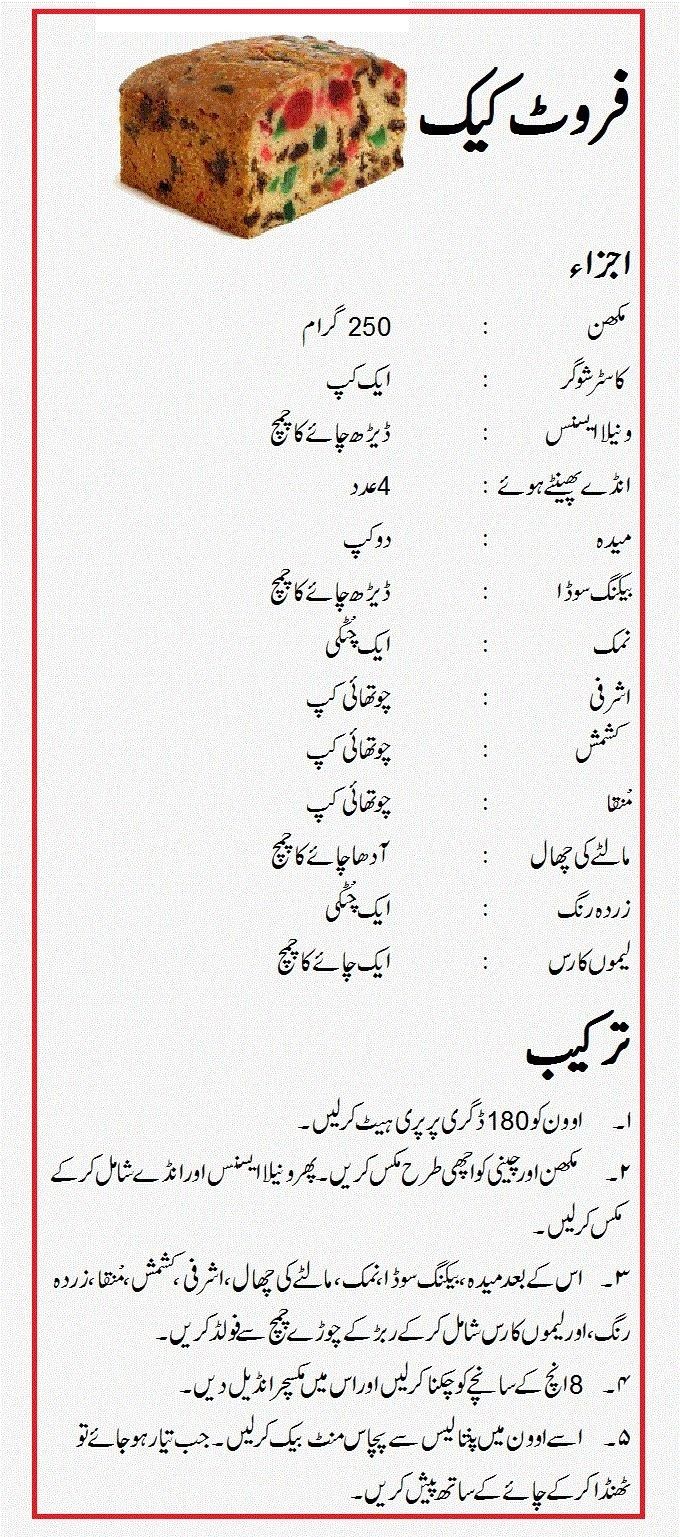 فروٹ کیک
اجزاء
مکھن : 250 گرام
کاسٹر شوگر : ایک کپ
ونیلا ایسنس : ڈیڑھ چائے کا چمچ
انڈے پھینٹے ہوئے : 4 عدد
میدہ : دو کپ
بیکنگ سوڈا : ڈیڑھ چائے کا چمچ
نمک : ایک چٹکی
اشرفی : چوتھائی کپ
کشمش : چوتھائی کپ
مُنقا : چوتھائی کپ
مالٹے کی چھال : آدھا چائے کا چمچ
زردہ رنگ : ایک چٹکی
لیموں کا رس : ایک چائے کا چمچ
ترکیب
۱۔ اوون کو 180 ڈگری پر پری ہیٹ کرلیں۔
۲۔ مکھن اور چینی کو اچھی طرح مکس کریں۔ پھر ونیلا ایسنس اور انڈے شامل کر کے
مکس کرلیں۔
۳۔ اس کے بعد میدہ، بیکنگ سوڈا، نمک، مالٹے کی چھال، اشرفی، کشمش، مُنقا، زردہ
رنگ، اور لیموں کا رس شامل کر کے ربڑ کے چوڑے چمچ سے فولڈ کریں۔
۴۔ 8 انچ کے سانچے کو چکنا کرلیں اور اس میں مکسچر انڈیل دیں۔
۵۔ اسے اوون میں پنتالیس سے پچاس منٹ بیک کرلیں۔ جب تیار ہو جائے تو
ٹھنڈا کر کے چائے کے ساتھ پیش کریں۔